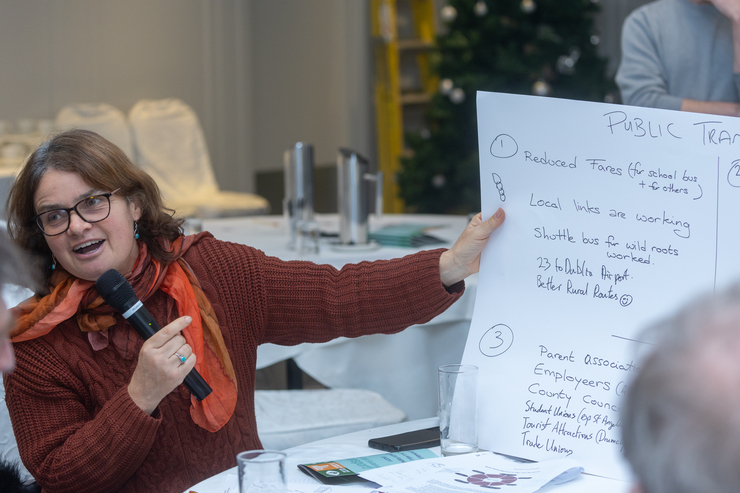 PUBLIC TRAN
1
Reduced Fares (for school bus
+ for others)
Local links are working
Shuttle bus for wild roots
worked.
23 to Dublin Airport.
Better Rural Routes ☺
3
Parent Associati
Employeers (
County Counc
Student Unions (esp St Ang
Tourist Attractions (Drum
Trade Unions